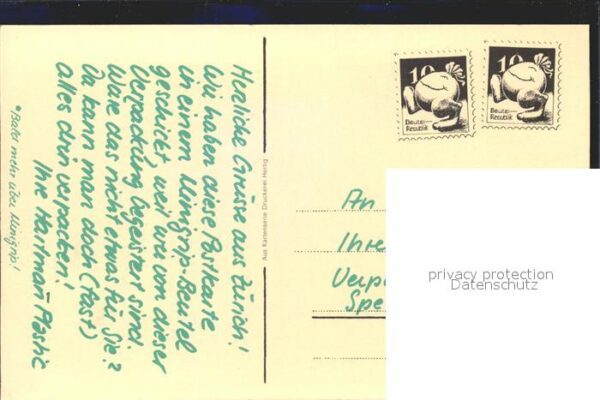 Herzliche Grüsse aus Zürich!
Wir haben diese Postkarte
in einem Minigrip-Beutel
geschickt weil wir von dieser
Verpackung begeistert sind.
Wäre das nicht etwas für Sie?
Da kann man doch (fast)
alles drin verpacken!
Ihre Hartmann Plastic
*Bitte mehr über Minigrip!
Aus Kartenserie Druckerei Hertig
10
Beutel-
Republik
10
Beutel-
Republik
An
Ihre
Verp
Spe
privacy protection
Datenschutz